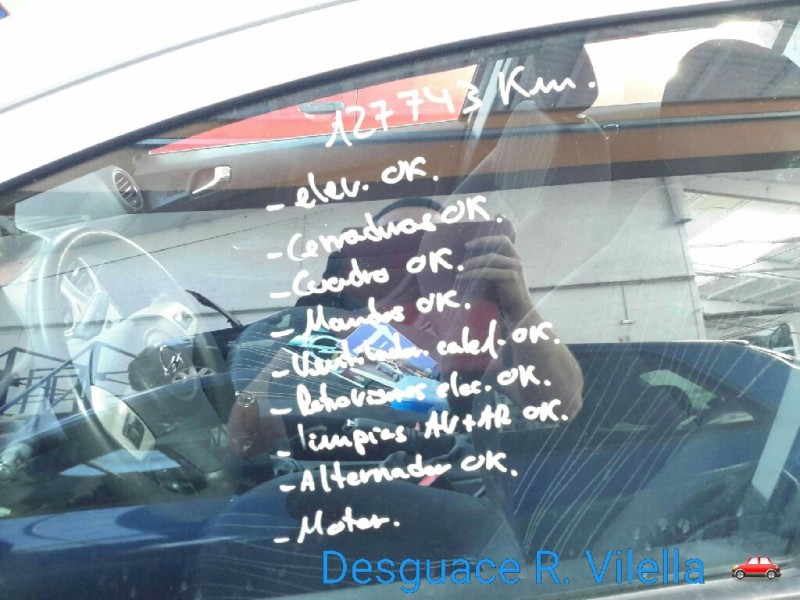 127743 Km.
- elev. OK.
- Cerraduras OK.
- Cuadro OK.
- Mandos OK.
- Ventilador calef. OK.
- Retrovisores elec. OK.
- limpias AV+AR OK.
- Alternador OK.
- Motor.
Desguace R. Vilella